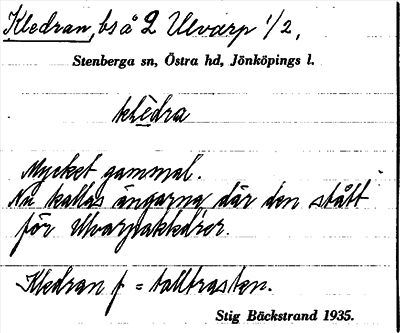 Kledran, bs å 2 Ulvarp 1/2,
Stenberga sn, Östra hd, Jönköpings l.
klèdra
Mycket gammal.
Nu kallas ängarna där den stått
för Ulvarpakledror.
Kledran f = talltrasten.
Stig Bäckstrand 1935.